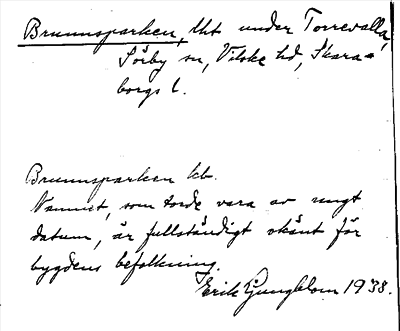 Brunnsparken, lht under Torrevalla,
Sörby sn, Vilske hd, Skara=
borgs l.
Brunnsparken kb.
Namnet, som torde vara av ungt
datum, är fullständigt okänt för
bygdens befolkning.
Erik Ljungblom 1938.